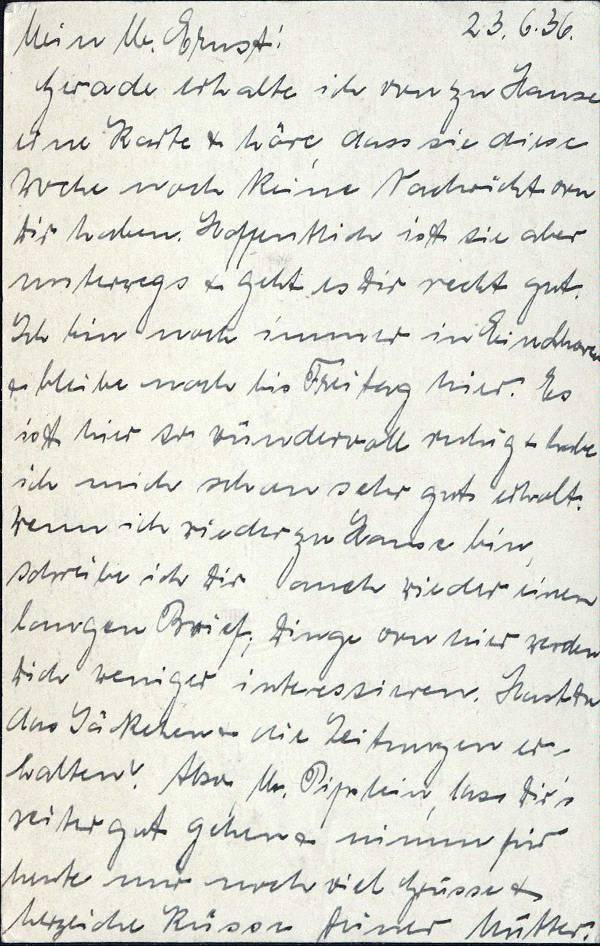 23.6.36.
Mein lb. Ernst!
Gerade erhalte ich von zu Hause
eine Karte & höre dass sie diese
Woche noch keine Nachricht von
Dir haben. Hoffentlich ist sie aber
unterwegs & geht es Dir recht gut.
Ich bin noch immer in Eindhoven
& bleibe noch bis Freitag hier. Es
ist hier so wundervoll ruhig & habe
ich mich schon sehr gut erholt.
Wenn ich wieder zu Hause bin,
schreibe ich Dir auch wieder einen
langen Brief, Dinge von hier werden
Dich weniger interessieren. Hast Du
das Jäckchen & die Zeitungen er-
halten? Also, lb. lass Dir's
weiter gut gehen & nimm für
heute nur noch viel Grüsse &
herzliche Küsse Deiner Mutter.